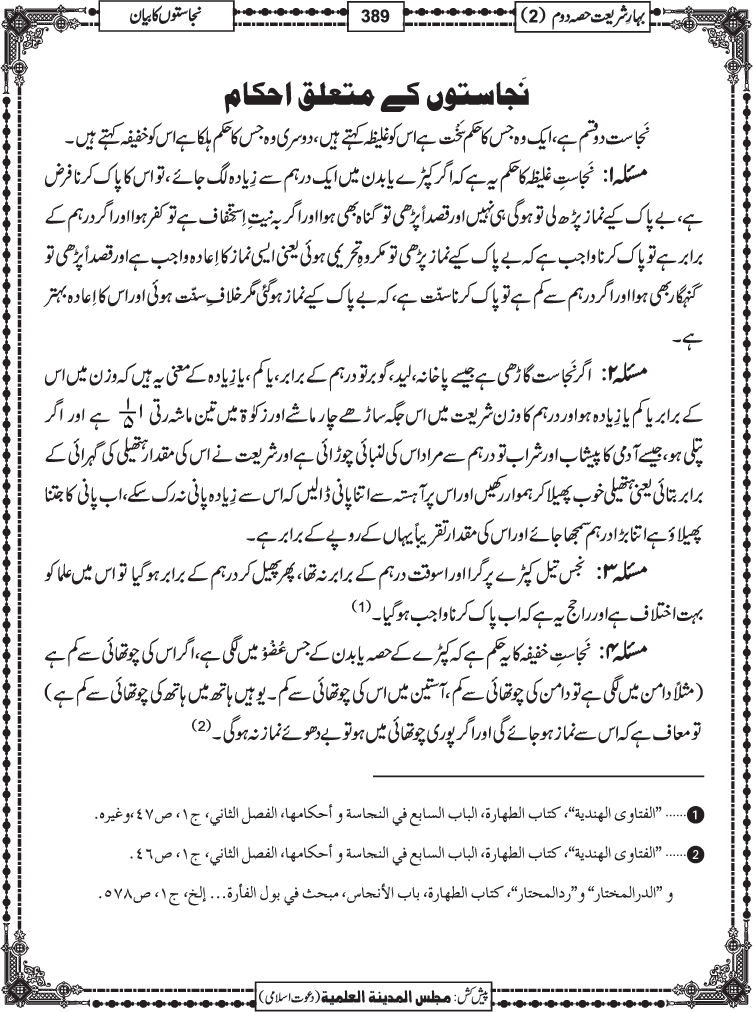 بہارِ شریعت حصہ دوم (2)
389
نجاستوں کا بیان
نَجاستوں کے متعلق احکام
نَجاست دو قسم ہے، ایک وہ جس کا حکم سَخْت ہے اس کو غلیظہ کہتے ہیں، دوسری وہ جس کا حکم ہلکا ہے اس کو خفیفہ کہتے ہیں۔
مسئلہ ۱: نَجاستِ غلیظہ کا حکم یہ ہے کہ اگر کپڑے یا بدن میں ایک درہم سے زِیادہ لگ جائے، تو اس کا پاک کرنا فرض
ہے، بے پاک کیے نماز پڑھ لی تو ہو گی ہی نہیں اور قصداً پڑھی تو گناہ بھی ہوا اور اگر بہ نیتِ اِستِخفاف ہے تو کفر ہوا اور اگر درہم کے
برابر ہے تو پاک کرنا واجب ہے کہ بے پاک کیے نماز پڑھی تو مکروہِ تحریمی ہوئی یعنی ایسی نماز کا اِعادہ واجب ہے اور قصداً پڑھی تو
گنہگار بھی ہوا اور اگر درہم سے کم ہے تو پاک کرنا سنّت ہے، کہ بے پاک کیے نماز ہوگئی مگر خلافِ سنّت ہوئی اور اس کا اِعادہ بہتر
ہے۔
مسئلہ ۲: اگر نَجاست گاڑھی ہے جیسے پاخانہ، لید، گوبر تو درہم کے برابر، یا کم، یا زِیادہ کے معنی یہ ہیں کہ وزن میں اس
کے برابر یا کم یا زِیادہ ہو اور درہم کا وزن شریعت میں اس جگہ ساڑھے چار ماشے اور زکوٰۃ میں تین ماشہ رتی ۱ ۱/۵ ہے اور اگر
پتلی ہو، جیسے آدمی کا پیشاب اور شراب تو درہم سے مراد اس کی لنبائی چوڑائی ہے اور شریعت نے اس کی مقدار ہتھیلی کی گہرائی کے
برابر بتائی یعنی ہتھیلی خوب پھیلا کر ہموار رکھیں اور اس پر آہستہ سے اتنا پانی ڈالیں کہ اس سے زِیادہ پانی نہ رک سکے، اب پانی کا جتنا
پھیلاؤ ہے اتنا بڑا درہم سمجھا جائے اور اس کی مقدار تقریباً یہاں کے روپے کے برابر ہے۔
مسئلہ ۳: نجس تیل کپڑے پر گرا اور اسوقت درہم کے برابر نہ تھا، پھر پھیل کر درہم کے برابر ہوگیا تو اس میں علما کو
بہت اختلاف ہے اور راجح یہ ہے کہ اب پاک کرنا واجب ہو گیا۔ (1)
مسئلہ ۴: نَجاستِ خفیفہ کا یہ حکم ہے کہ کپڑے کے حصہ یا بدن کے جس عُضْوْ میں لگی ہے، اگر اس کی چوتھائی سے کم ہے
(مثلاً دامن میں لگی ہے تو دامن کی چوتھائی سے کم، آستین میں اس کی چوتھائی سے کم۔ یوہیں ہاتھ میں ہاتھ کی چوتھائی سے کم ہے)
تو معاف ہے کہ اس سے نماز ہو جائے گی اور اگر پوری چوتھائی میں ہو تو بے دھوئے نماز نہ ہوگی۔ (2)
1 ...... ”الفتاوی الهندیة“، کتاب الطهارة، الباب السابع في النجاسة و أحکامها، الفصل الثاني، ج۱، ص۴۷، وغیره.
2 ...... ”الفتاوی الهندیة“، کتاب الطهارة، الباب السابع في النجاسة و أحکامها، الفصل الثاني، ج۱، ص۴۶.
و ”الدرالمختار“ و”ردالمحتار“، کتاب الطهارة، باب الأنجاس، مبحث في بول الفأرة... إلخ، ج۱، ص۵۷۸.
پیش کش: مجلس المدینة العلمیة (دعوت اسلامی)